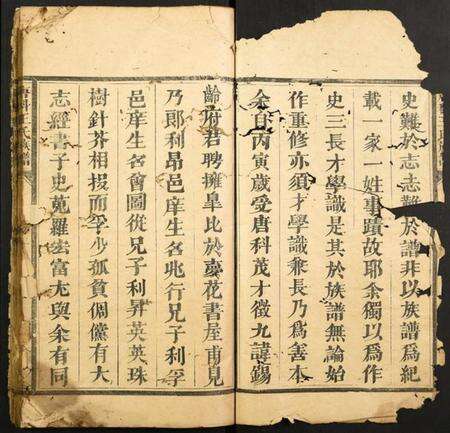 史難於志志難於譜非以族譜爲紀
載一家一姓事蹟故耶余獨以爲作
史三長才學識是其於族譜無論始
作重修亦須才學識兼長乃爲善本
余自丙寅歲受唐科茂才徵九諱錫
齡府君聘擁皋比於藜花書屋甫見
乃郎利昂邑庠生名兆行兄子利孚
邑庠生名會圖從兄子利昇英英珠
樹針芥相投而孚少孤貧倜儻有大
志經書子史蒐羅宏富尤與余有同
氏族譜